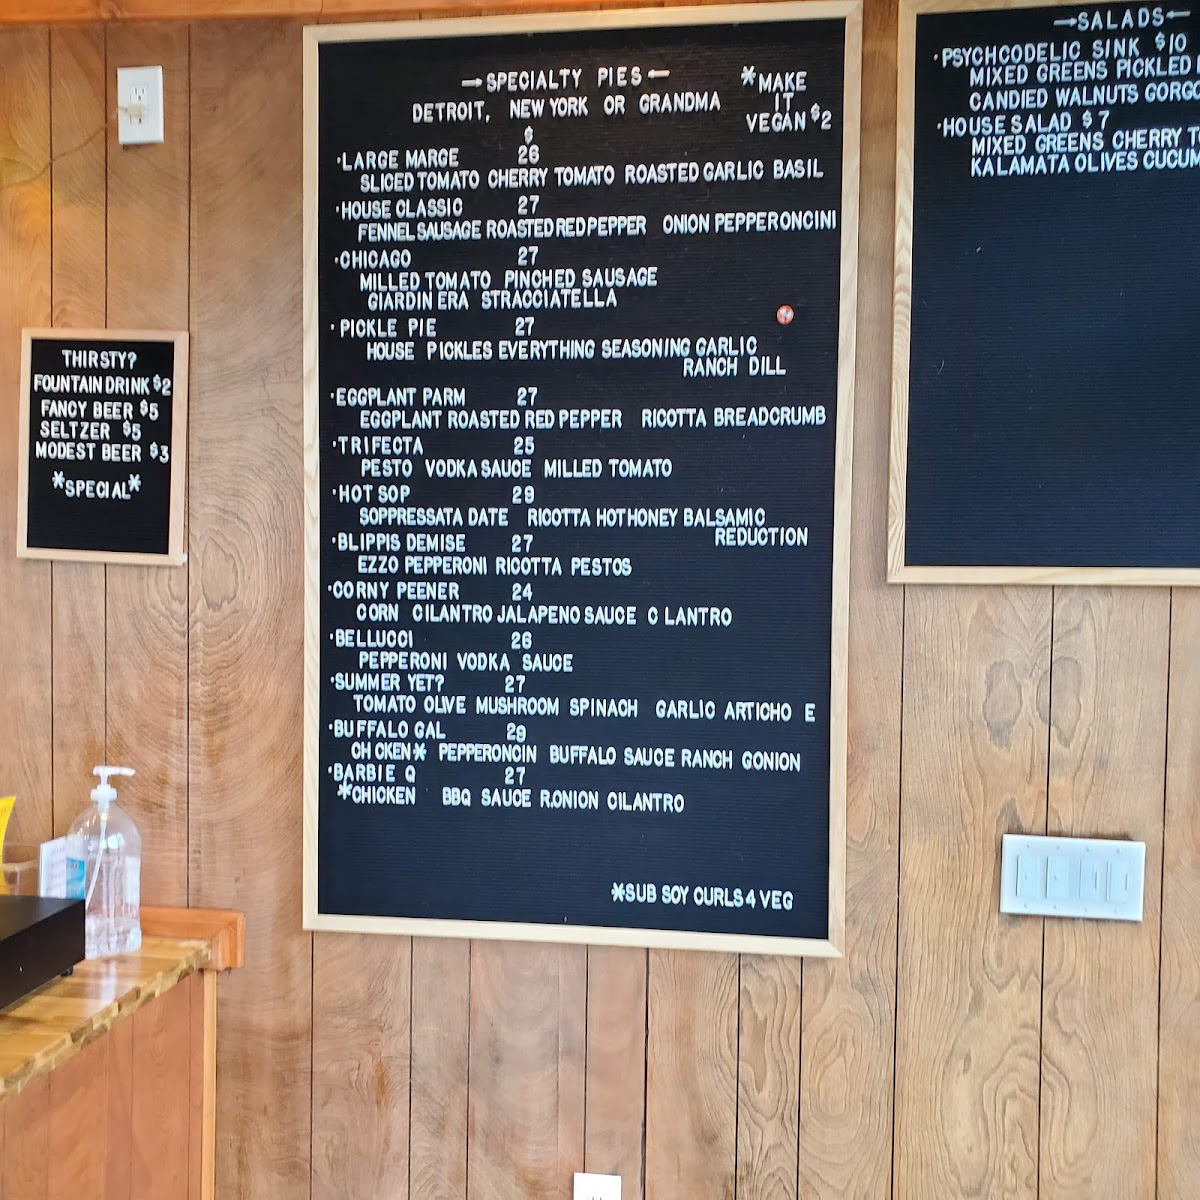 THIRSTY?
FOUNTAIN DRINK $2
FANCY BEER $5
SELTZER $5
MODEST BEER $3
*SPECIAL*
→SPECIALTY PIES←
DETROIT, NEW YORK OR GRANDMA
*MAKE
IT
VEGAN $2
$
·LARGE MARGE 26
SLICED TOMATO CHERRY TOMATO ROASTED GARLIC BASIL
·HOUSE CLASSIC 27
FENNEL SAUSAGE ROASTED RED PEPPER ONION PEPPERONCINI
·CHICAGO 27
MILLED TOMATO PINCHED SAUSAGE
GIARDINERA STRACCIATELLA
·PICKLE PIE 27
HOUSE PICKLES EVERYTHING SEASONING GARLIC
RANCH DILL
·EGGPLANT PARM 27
EGGPLANT ROASTED RED PEPPER RICOTTA BREADCRUMB
·TRIFECTA 25
PESTO VODKA SAUCE MILLED TOMATO
·HOT SOP 29
SOPPRESSATA DATE RICOTTA HOTHONEY BALSAMIC
REDUCTION
·BLIPPIS DEMISE 27
EZZO PEPPERONI RICOTTA PESTOS
·CORNY PEENER 24
CORN CILANTRO JALAPENO SAUCE C LANTRO
·BELLUCCI 26
PEPPERONI VODKA SAUCE
·SUMMER YET? 27
TOMATO OLIVE MUSHROOM SPINACH GARLIC ARTICHO E
·BUFFALO GAL 29
CH CKEN* PEPPERONCIN BUFFALO SAUCE RANCH GONION
·BARBIE Q 27
*CHICKEN BBQ SAUCE R.ONION CILANTRO
*SUB SOY CURLS 4 VEG
→SALADS←
·PSYCHCODELIC SINK $10
MIXED GREENS PICKLED
CANDIED WALNUTS GORGO
·HOUSE SALAD $7
MIXED GREENS CHERRY T
KALAMATA OLIVES CUCUM